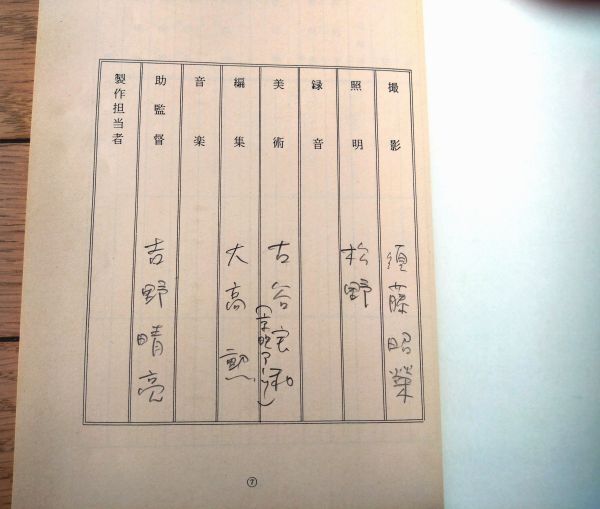 撮影 須藤昭榮
照明 松野
録音
美術 古谷宏和
編集 大高勲
音楽
助監督 吉野晴亮
製作担当者
⑦